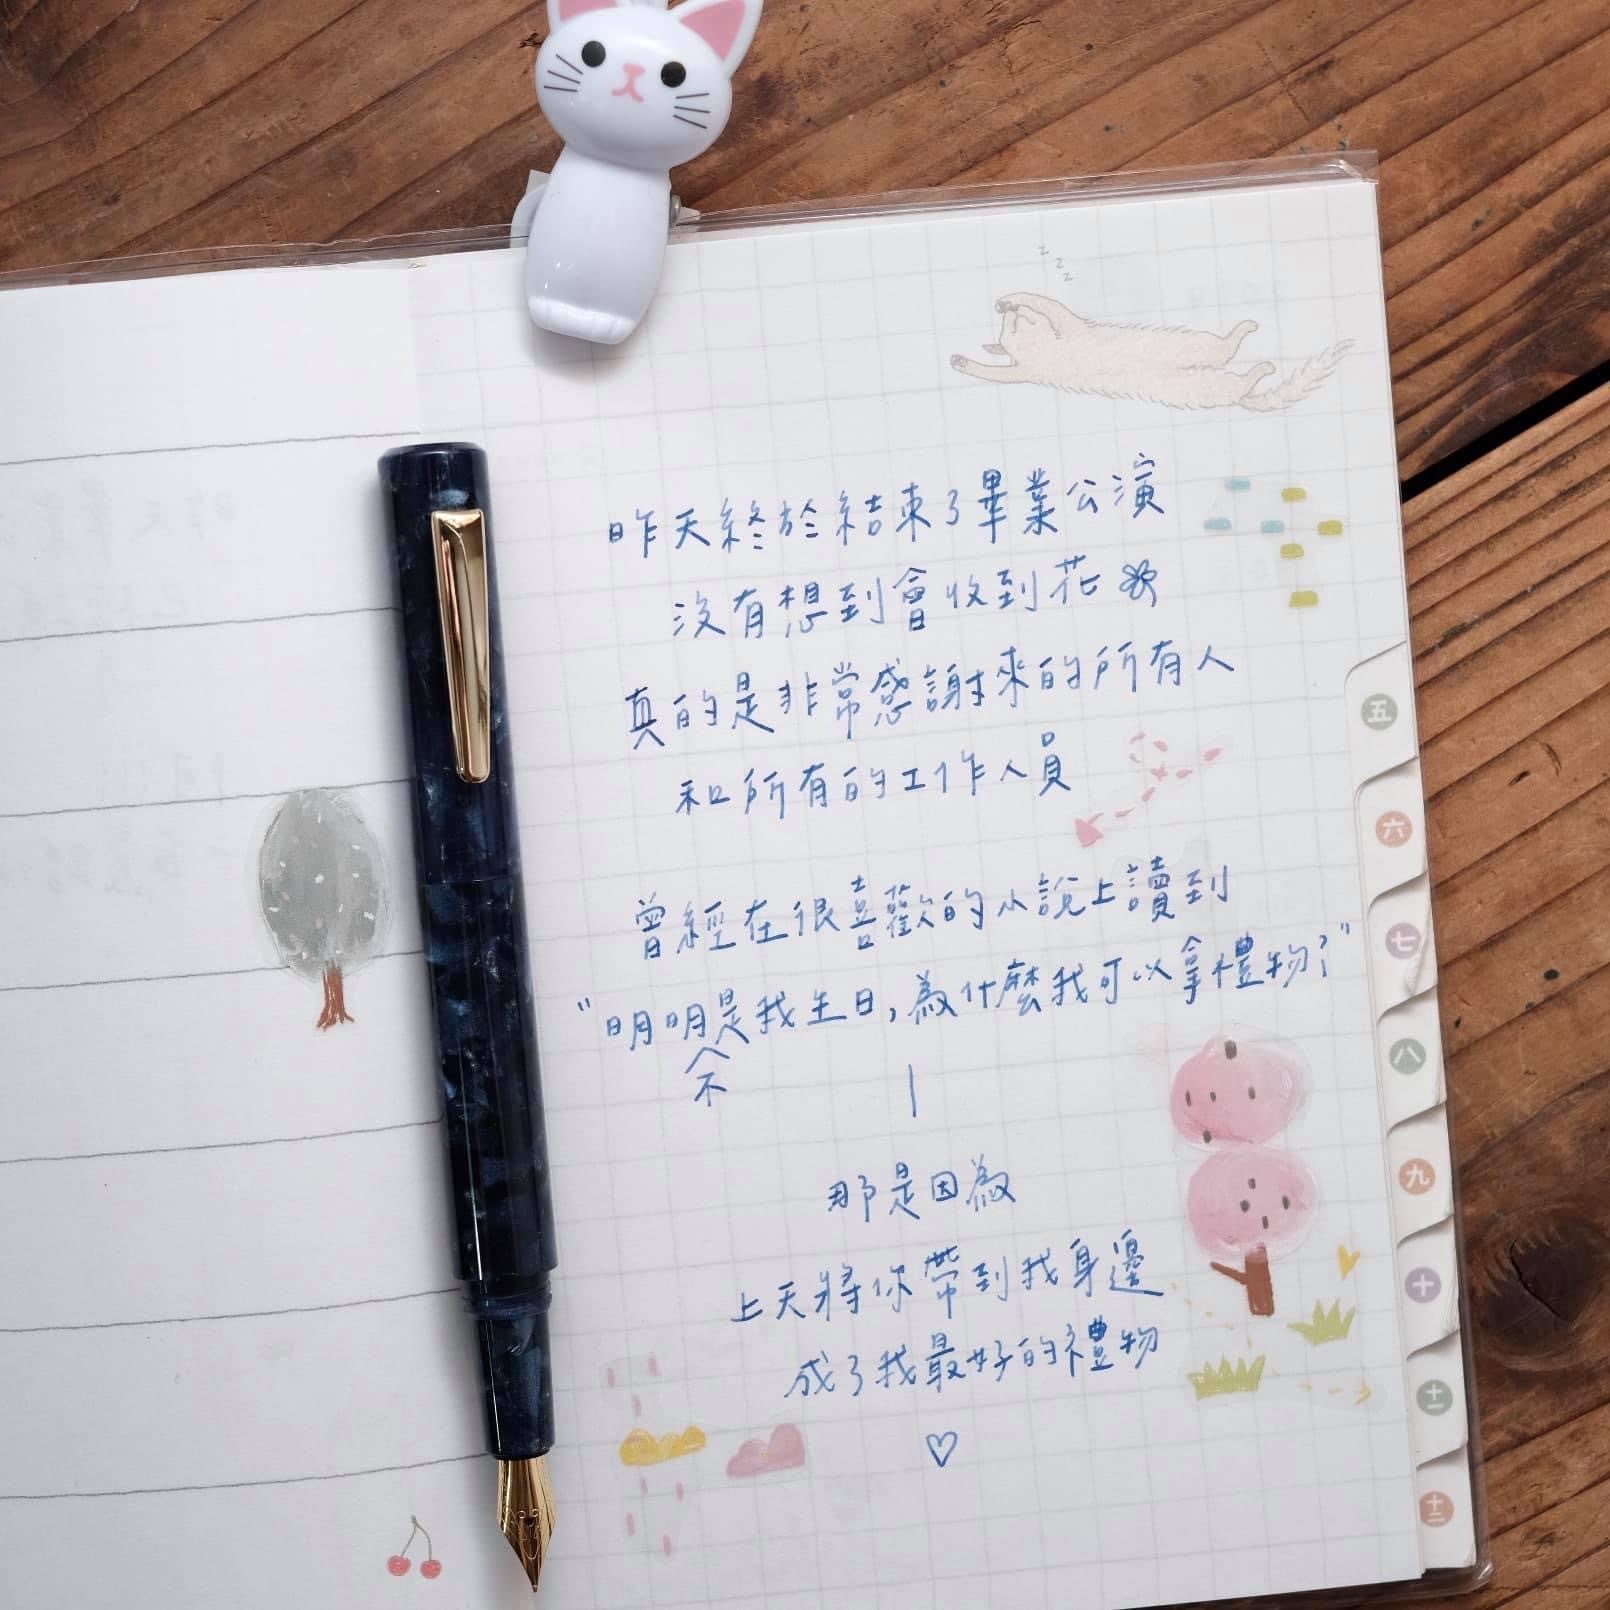 z
z
z
昨天終於結束了畢業公演
沒有想到會收到花
真的是非常感謝來的所有人
和所有的工作人員
曾經在很喜歡的小說上讀到
"明明是我生日,為什麼我可以拿禮物?"
不
那是因為
上天將你帶到我身邊
成了我最好的禮物
♡
五
六
七
八
九
十
十一
十二